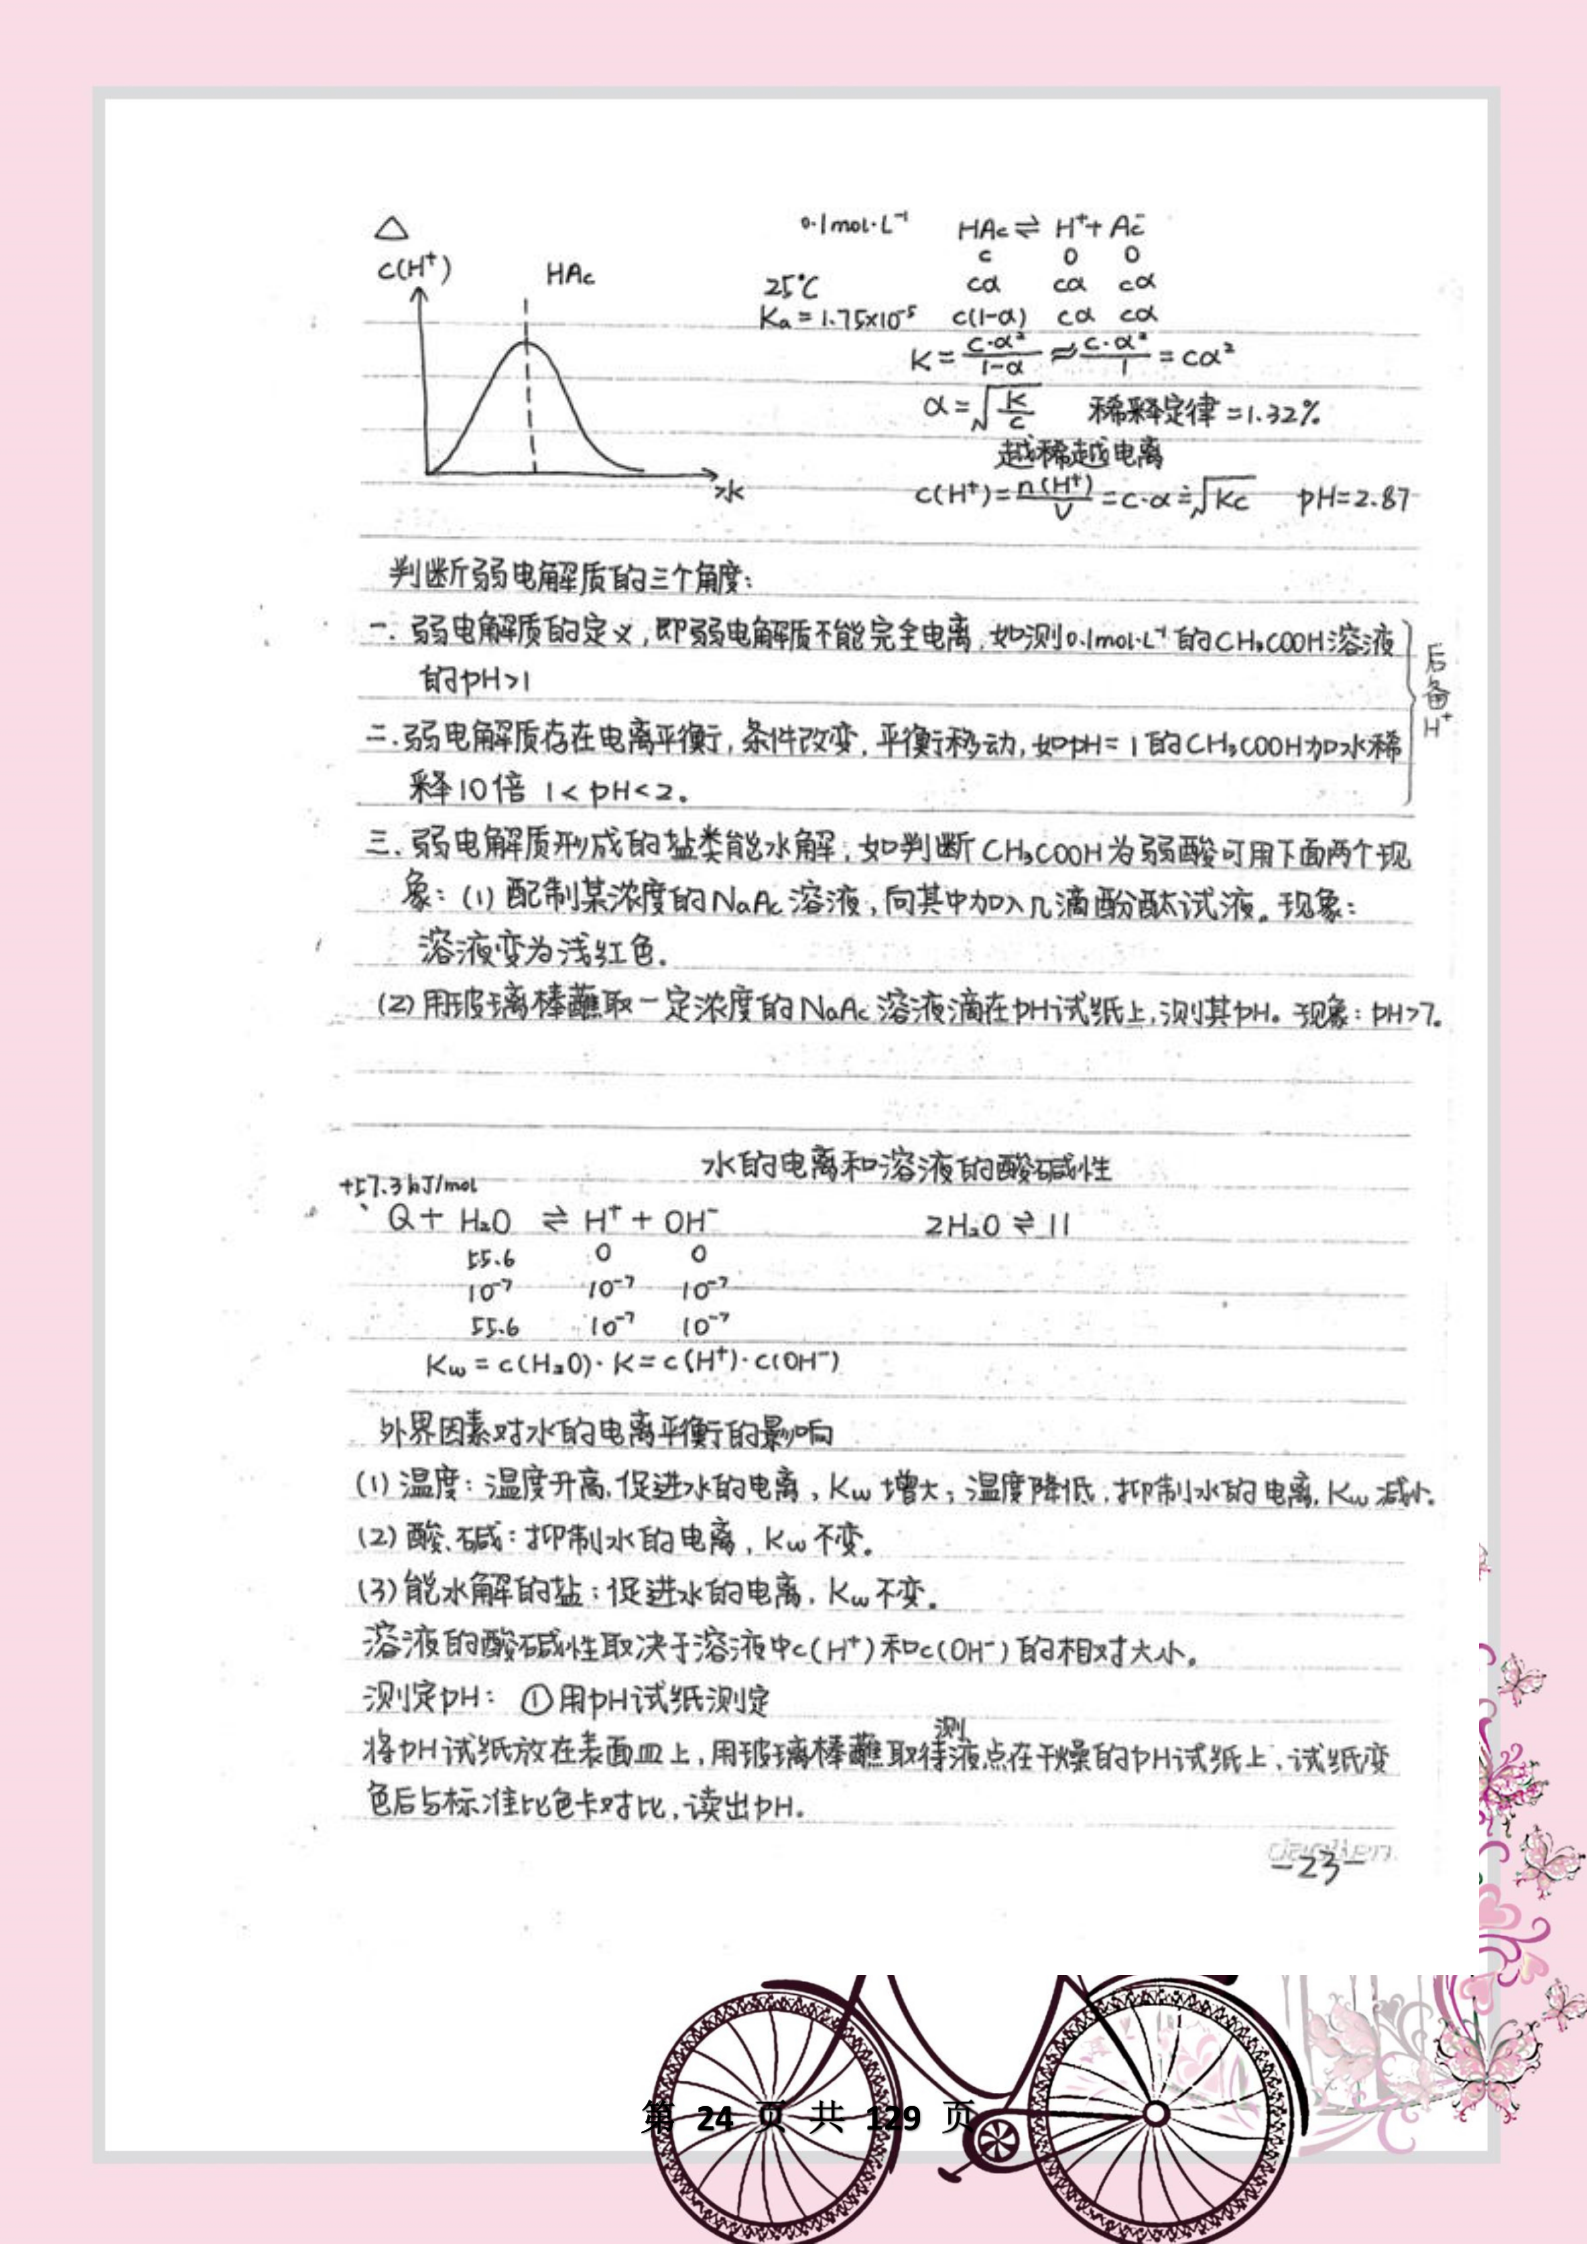 △
c(H⁺)
HAc
水
0.1mol·L⁻¹
HAc⇌ H⁺+ Ac⁻
c 0 0
25℃ cα cα cα
Ka=1.75×10⁻⁵ c(1-α) cα cα
K=c·α²/1-α ≈ c·α²/1 = cα²
α=√K/c 稀释定律=1.32%
越稀越电离
c(H⁺)=n(H⁺)/V=c·α≐√Kc pH=2.87
判断弱电解质的三个角度:
一.弱电解质的定义,即弱电解质不能完全电离,如测0.1mol·L⁻¹的CH₃COOH溶液
的pH>1
二.弱电解质存在电离平衡,条件改变,平衡移动,如pH=1的CH₃COOH加水稀
释10倍 1<pH<2。
后备H⁺
三.弱电解质形成的盐类能水解,如判断CH₃COOH为弱酸可用下面两个现
象:(1)配制某浓度的NaAc溶液,向其中加入几滴酚酞试液。现象:
溶液变为浅红色。
(2)用玻璃棒蘸取一定浓度的NaAc溶液滴在pH试纸上,测其pH。现象:pH>7。
水的电离和溶液的酸碱性
+57.3kJ/mol
Q+ H₂O ⇌ H⁺+OH⁻ 2H₂O⇌11
55.6 0 0
10⁻⁷ 10⁻⁷ 10⁻⁷
55.6 10⁻⁷ 10⁻⁷
Kw=c(H₂O)·K=c(H⁺)·c(OH⁻)
外界因素对水的电离平衡的影响
(1)温度:温度升高,促进水的电离,Kw增大;温度降低,抑制水的电离,Kw减小。
(2)酸、碱:抑制水的电离,Kw不变。
(3)能水解的盐:促进水的电离,Kw不变。
溶液的酸碱性取决于溶液中c(H⁺)和c(OH⁻)的相对大小。
测定pH: ①用pH试纸测定
将pH试纸放在表面皿上,用玻璃棒蘸取待测液点在干燥的pH试纸上,试纸变
色后与标准比色卡对比,读出pH。
-23-
第 24 页 共 129 页